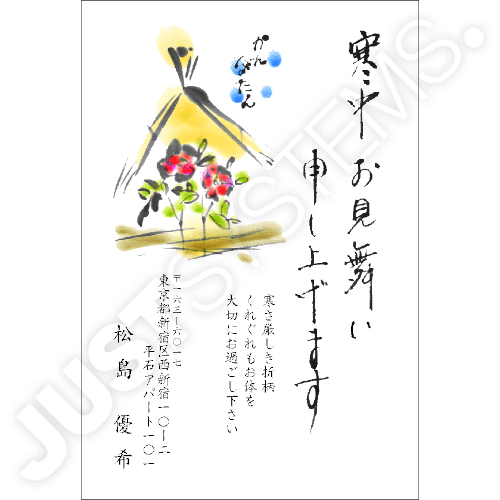 寒中お見舞い
申し上げます
かん
ぼたん
寒さ厳しき折柄
くれぐれもお体を
大切にお過ごし下さい
〒一六三−六〇一七
東京都新宿区西新宿一〇−二
平石アパート一〇一
松島優希
JUSTSYSTEMS.